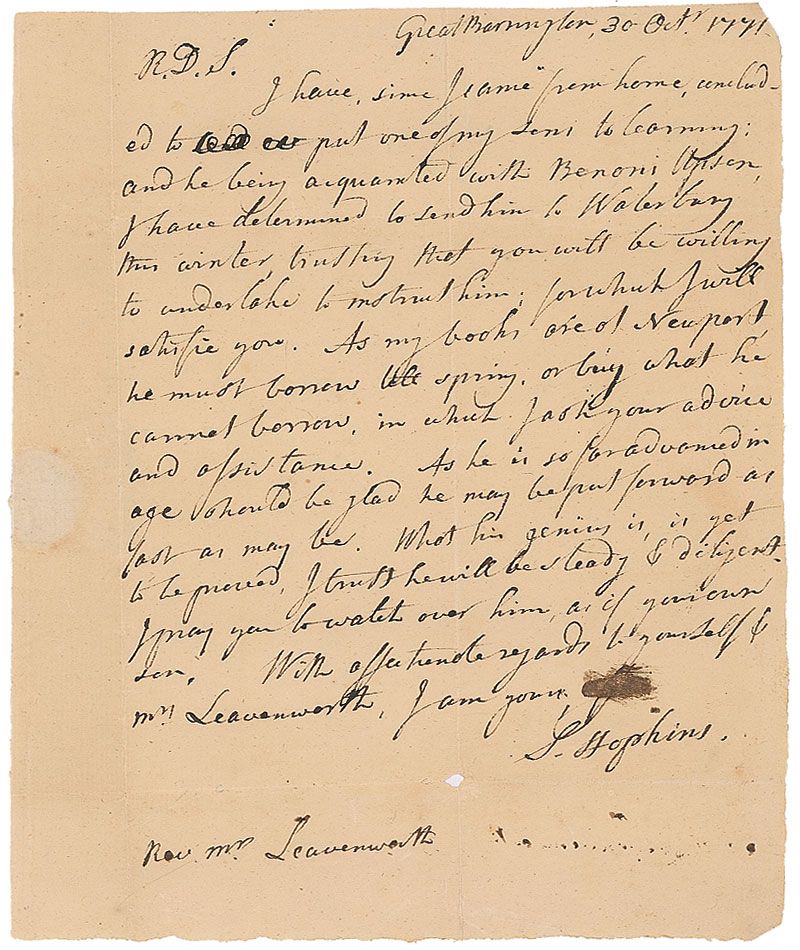 Great Barrington, 30 Octr. 1771
R.D.S.
I have, since I came from home, conclud-
ed to put one of my sons to learning;
and he being acquainted with Benoni Upson,
I have determined to send him to Waterbury
this winter, trusting that you will be willing
to undertake to instruct him; for which I will
satisfie you. As my books are at Newport,
he must borrow till spring, or buy what he
cannot borrow, in which I ask your advice
and assistance. As he is so far advanced in
age should be glad he may be put forward as
fast as may be. What his genius is, is yet
to be proved, I trust he will be steady & diligent.
I pray you to watch over him, as if your own
son. With affectionate regards to yourself &
mrs Leavenworth, I am yours,
S. Hopkins.
Rev. mr. Leavenworth